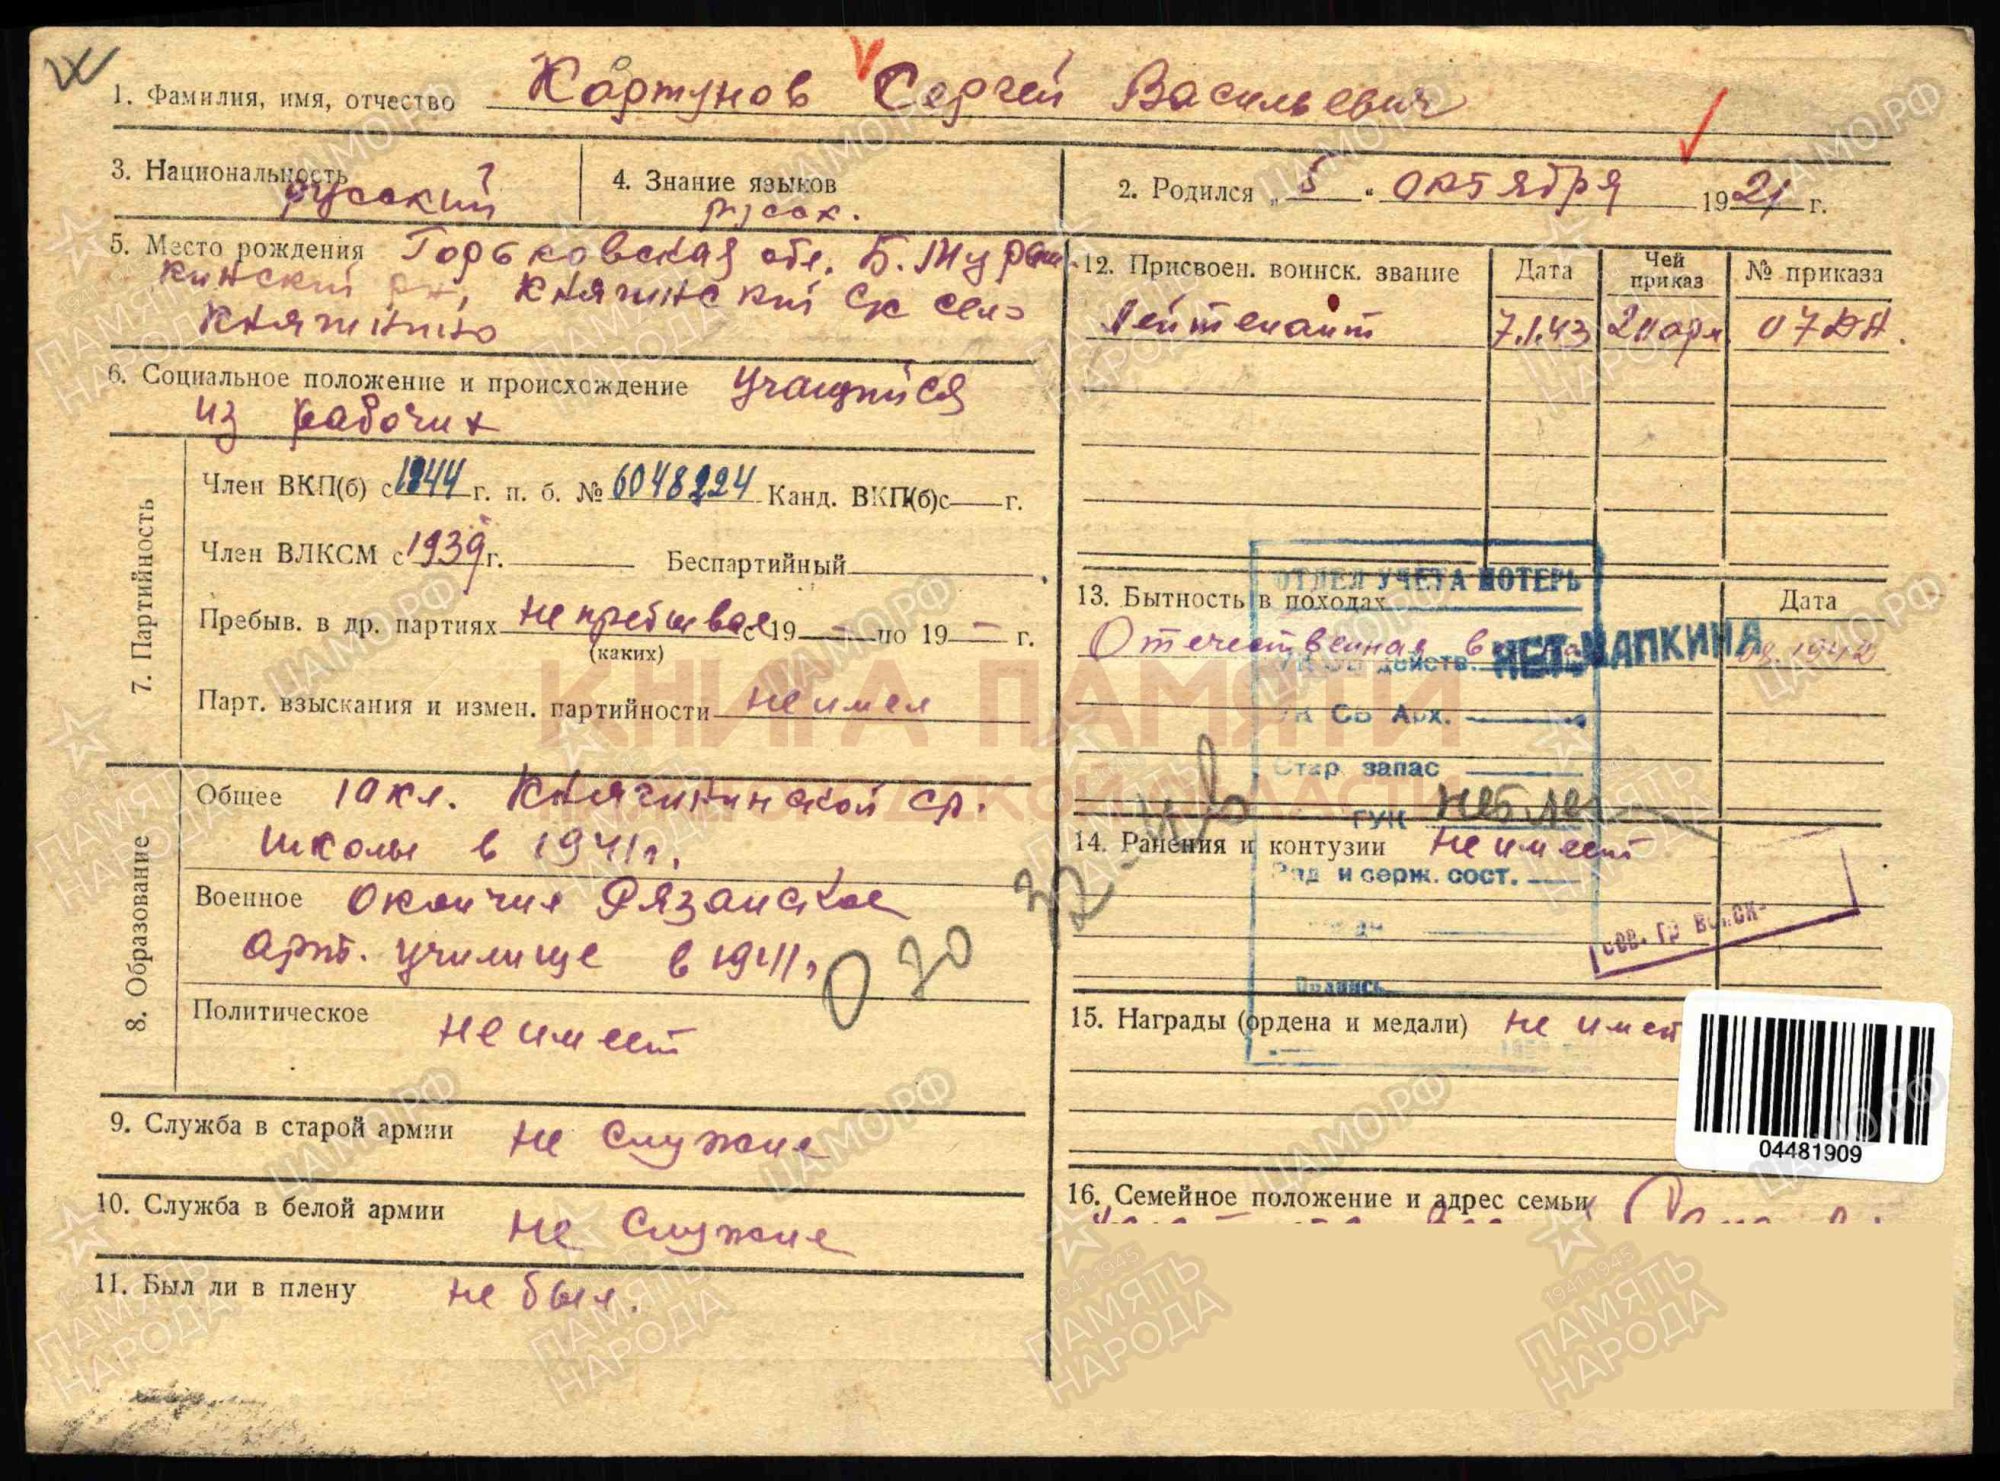 1. Фамилия, имя, отчество Картунов Сергей Васильевич
3. Национальность русский
4. Знание языков русск.
2. Родился „ 5 " октября 1921 г.
5. Место рождения Горьковская обл. Б. Мураш-
кинский рн, Княгинский с/с село
Княгинино
6. Социальное положение и происхождение учащийся
из рабочих
7. Партийность
Член ВКП(б) с 1944 г. п. б. № 6048224 Канд. ВКП(б) с г.
Член ВЛКСМ с 1939 г. Беспартийный
Пребыв. в др. партиях не пребывал с 19 — по 19 — г.
(каких)
Парт. взыскания и измен. партийности не имел
8. Образование
Общее 10 кл. Княгининской ср.
школы в 1941 г.
Военное окончил Рязанское
арт. училище в 1941 г.
Политическое не имеет
9. Служба в старой армии не служил
10. Служба в белой армии не служил
11. Был ли в плену не был.
12. Присвоен. воинск. звание Дата Чей приказ № приказа
Лейтенант 7.1.43 07
13. Бытность в походах Дата
Отечественная 1942
ОТДЕЛ УЧЕТА ПОТЕРЬ
действ. НЕТ ЧАПКИНА
СВ Арх.
Стар. запас
ГУК
14. Ранения и контузии не имеет
Ряд и серж. сост.
Подпись
15. Награды (ордена и медали) не имеет
04481909
16. Семейное положение и адрес семьи
КНИГА ПАМЯТИ
НИЖЕГОРОДСКОЙ ОБЛАСТИ
ЦАМО.РФ
1941-1945
ПАМЯТЬ
НАРОДА